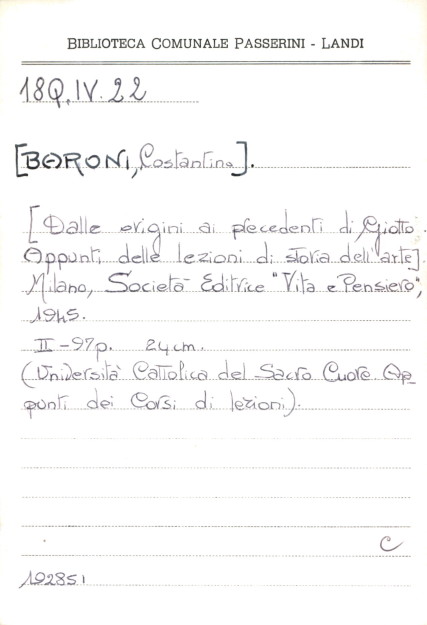 BIBLIOTECA COMUNALE PASSERINI - LANDI
18Q.IV.22
[BARONI, Costantina].
[Dalle origini ai precedenti di Giotto.
Appunti delle lezioni di storia dell'arte].
Milano, Società Editrice "Vita e Pensiero",
1945.
II-97p. 24cm.
(Università Cattolica del Sacro Cuore. Ap_
punti dei Corsi di lezioni).
C
192851